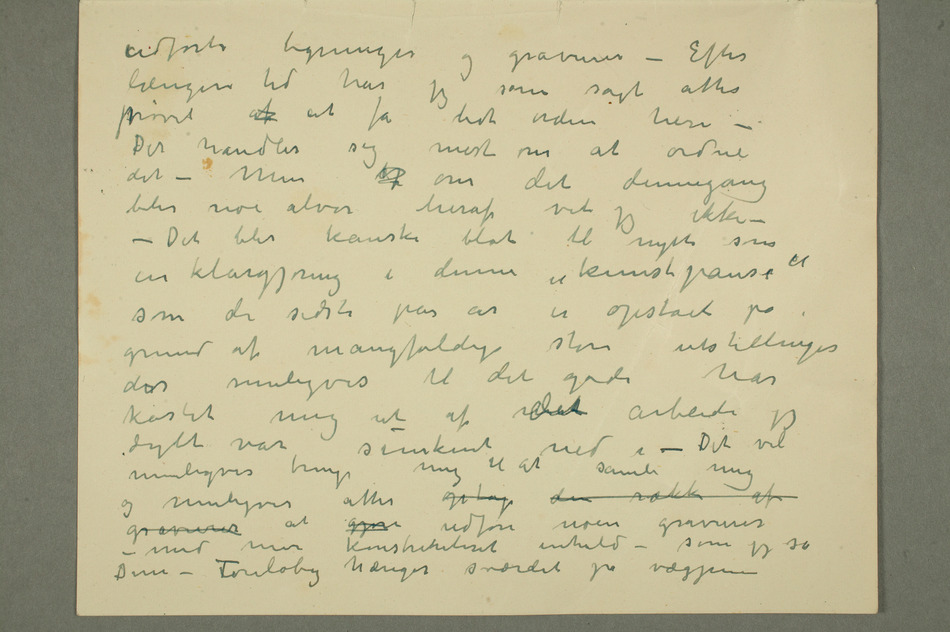 udførte tegninger og gravurer – Efter
længere tid har jg som sagt atter
prøvet af at få lidt orden heri –
Det handler sig mest om at ordne
det – Men og om det dennegang
blir noe alvor heraf vet jg ikke –
– Det blir kanske blot til nytte som
en klargjøring i denne "kunstpause"
som de sidste par år er opstået på
grund af mangfoldige store utstillinger
der muligvis til det gode har
kastet mig ut af det arbeide jg
dypt var senket ned i – Det vil
muligvis bringe mig til at samle mig
og muligvis atter optage den række af
gravurer at gjøre udføre noen gravurer
– med mer konsentreret inhold – som jg så
Dem – Foreløbig hænger sværdet på væggen